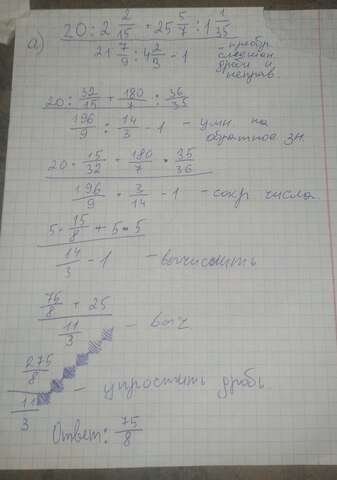 а) 20 : 2 2/15 + 25 5/7 : 1 1/35
21 7/9 : 4 2/3 - 1
- преобр.
дроби в
неправ
20 : 32/15 + 180/7 : 36/35
196/9 : 14/3 - 1 - умн на
обратное зн.
20 · 15/32 + 180/7 · 35/36
196/9 · 3/14 - 1 - сокр числа
5 · 15/8 + 5 · 5
14/3 - 1 - вычислить
75/8 + 25
11/3 - выч
275/8
11/3 - упростить дробь
Ответ: 75/8